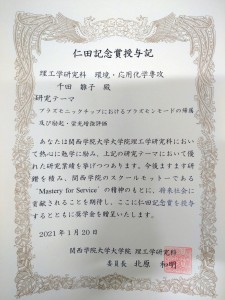 仁田記念賞授与記
理工学研究科 環境・応用化学専攻
千田 雛子 殿
研究テーマ
プラズモニックチップにおけるプラズモンモードの帰属
及び励起・蛍光増強評価
あなたは関西学院大学大学院理工学研究科におい
て熱心に勉学に励み、上記の研究テーマにおいて優
れた研究業績を挙げつつあります。今後ますます研
鑽を積み、関西学院のスクールモットーである
"Mastery for Service"の精神のもとに、将来社会に
貢献されることを期待し、ここに仁田記念賞を授与
するとともに奨学金を贈呈いたします。
2021年1月20日
関西学院大学大学院 理工学研究科
委員長 北原 和明